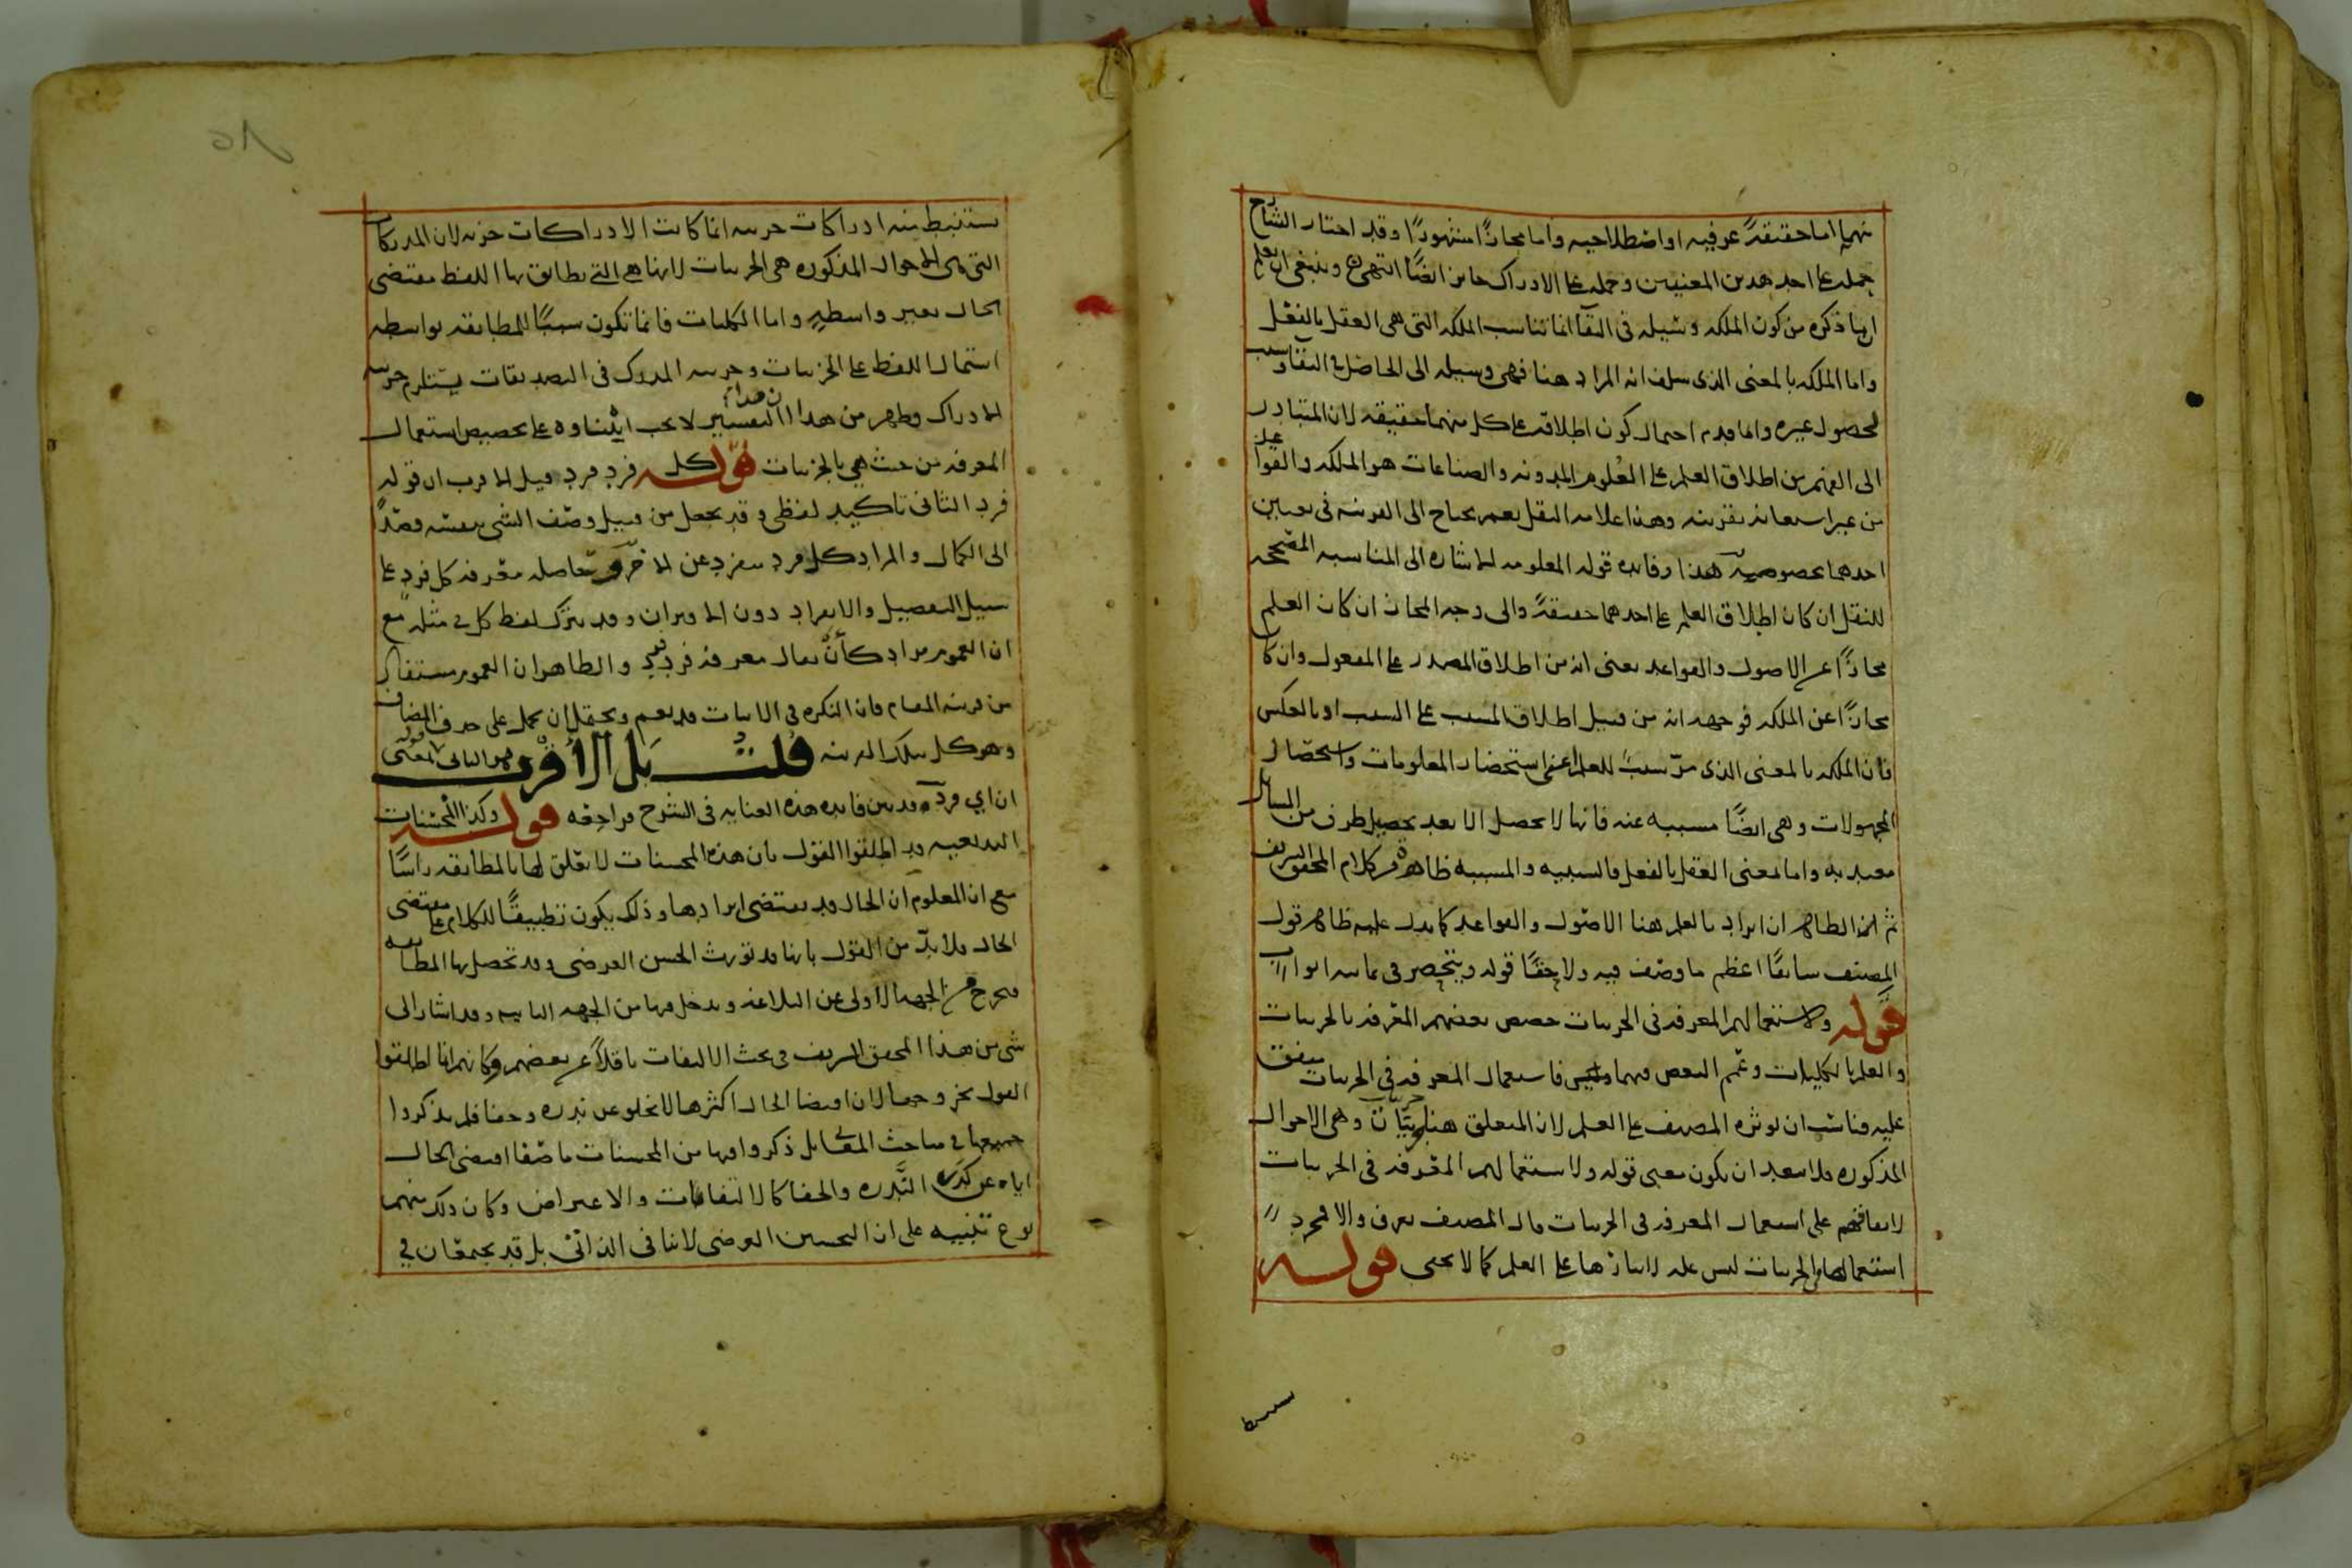 منهما اما حقيقةً عرفيه او اصطلاحيه واما مجازًا مشهورًا وقد اختار الشارح
حمله على احد هذين المعنيين وحمله على الادراك جائز ايضًا انتهى وينبغي ان يعلم
ان ما ذكره من كون الملكه وسيله في البقا انما تناسب الملكه التي هي العقل بالفعل
واما الملكه بالمعنى الذي سلف انه المراد هنا فهي وسيله الى الحاصل في البقا وسبب
لحصول غيره واما قدم احتمال كون اطلاقه على كل منهما حقيقه لان المتبادر
الى الفهم من اطلاق العلم على العلوم المدونه والصناعات هو الملكه والقواعد
من غير استعانه بقرينه وهذا علامه النقل نعم يحتاج الى القرينه في تعيين
احدهما بخصوصيته هذا وفائده قوله المعلومه الاشاره الى المناسبه المصححه
للنقل ان كان اطلاق العلم على احدهما حقيقةً والى وجه المجاز ان كان العلم
مجازًا عن الاصول والقواعد يعني انه من اطلاق المصدر على المفعول وان كا
مجازًا عن الملكه فوجهه انه من قبيل اطلاق المسبب على السبب او بالعكس
فان الملكه بالمعنى الذي مرّ سببٌ للعلم اعني استحضار المعلومات واستحصال
المجهولات وهي ايضًا مسببه عنه فانها لا تحصل الا بعد تحصيل طرف من المسائل
معتد به واما بمعنى العقل بالفعل فالسببيه والمسببيه ظاهرة من كلام المحقق الشريف
ثم ان الظاهر ان ايراد بالعلم هنا الاصول والقواعد كما يدل عليه ظاهر قول
المصنف سابقًا اعظم ما وصف فيه ولاحقًا قوله وينحصر في ثمانيه ابواب
قوله ولاستعمالهم المعرفه في الجزييات خصص بعضهم المعرفه بالجزييات
والعلم بالكليات وعمّم البعض فيهما فاستعمال المعرفه في الجزييات متفق
عليه فناسب ان يوثره المصنف على العلم لان المتعلق هنا جزييات وهي الاحوال
المذكوره فلا يبعد ان يكون معنى قوله ولاستعمالهم المعرفه في الجزييات
لاتفاقهم على استعمال المعرفه في الجزييات قال المصنف يعرف والا فمجرد
استعمالها في الجزييات ليس عله لايثارها على العلم كما لا يخفى قوله
يستنبط منه ادراكات جزييه انما كانت الادراكات جزييه لان المدركات
التي هي الاحوال المذكوره هي الجزييات لانها هي التي يطابق بها اللفظ مقتضى
الحال بغير واسطةٍ واما الكليات فانما تكون سببًا للمطابقه بواسطه
اشتمال اللفظ على الجزييات وجزييه المدرك في التصديقات يستلزم جزييه
الادراك وظهر من هذا التفسير لا يجب ابتناوه على تخصيص استعمال
المعرفه من حيث هي بالجزييات قوله كل فرد فرد قيل الاقرب ان قوله
فرد الثاني تاكيد لفظي وقد يجعل من قبيل وصف الشي بنفسه قصدًا
الى الكمال والمراد كل فرد منفرد عن الاخر وحاصله معرفه كل فرد على
سبيل التفصيل والانفراد دون الاقتران وقد يترك لفظ كل في مثله مع
ان العموم مراد كأن يقال معرفه فرد فرد والظاهر ان العموم مستفاد
من قرينه المقام فان النكره في الاثبات قد تعم ويحتمل ان يحمل على حذف المضاف
وهو كل بتلك القرينه قلت بل الأقرب
ان اي فرد وقد بين فايده هذه العنايه في الشرح فراجعه قوله وكذا المحسنات
البديعيه قد اطلقوا القول بان هذه المحسنات لا تعلق لها بالمطابقه راسًا
مع ان المعلوم ان الحال قد يقتضي ايرادها وذلك يكون تطبيقًا للكلام على مقتضى
الحال فلا بدّ من القول بانها قد تورث الحسن العرضي وقد تحصل بها المطابقه
فتخرج من الجهه الأولى عن البلاغه وتدخل فيها من الجهه الثانيه وقد اشار الى
شي من هذا المحقق الشريف في بحث الالتفات ناقلاً عن بعضهم وكانهم انما اطلقوا
القول بخروجها لان اقتضا الحال اكثرها لا يخلو عن ندره وخفا فلم يذكروا
جميعها في مباحث المعاني بل ذكروا فيها من المحسنات ما صفا اقتضى الحال
اياه عن كدر النَّدره والخفا كالالتفات والاعتراض وكان ذلك منهم
نوع تنبيه على ان التحسين العرضي لا ينافي الذاتي بل قد يجتمعان في